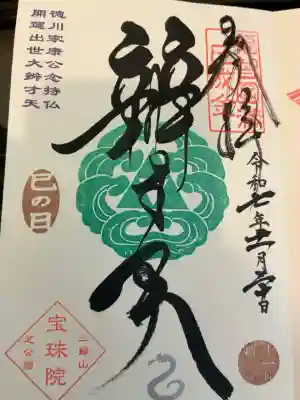 奉拝
令和七年十二月二十日
辨才天
徳川家康公念持仏
開運出世大辨才天
巳の日
三縁山
宝珠院
芝公園